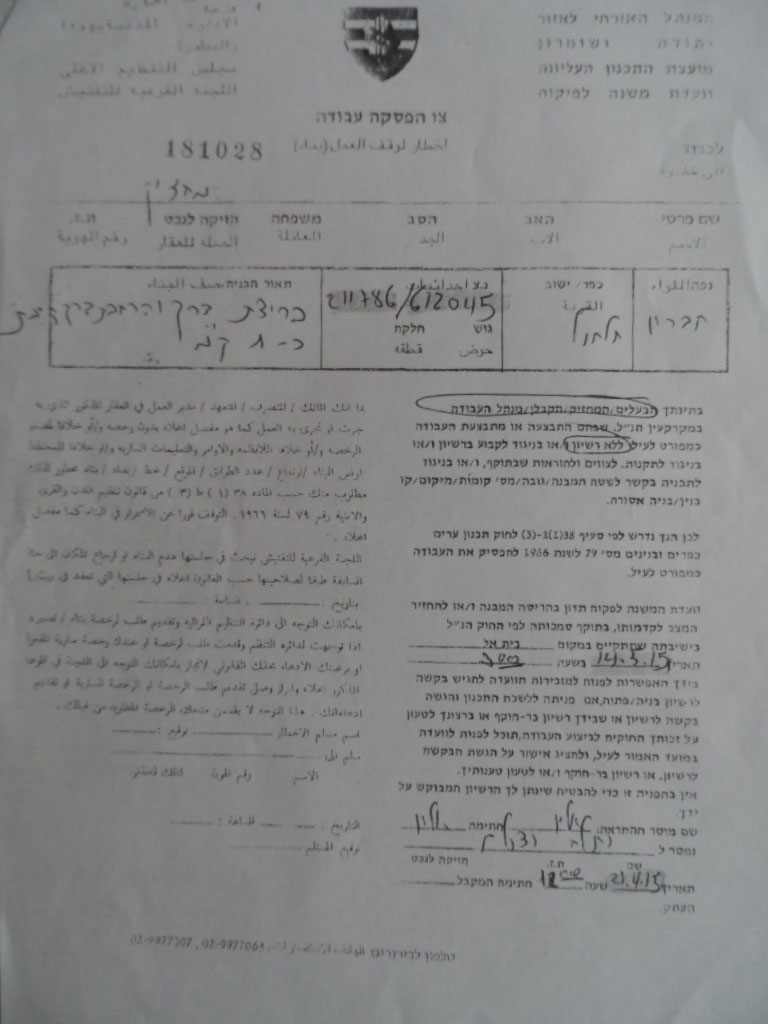 המנהל האזרחי לאזור
יהודה ושומרון
מועצת התכנון העליונה
וועדת משנה לפיקוח
الادارة المدنية يهودا
والسامرة
مجلس التنظيم الاعلى
اللجنة الفرعية للتفتيش
צו הפסקה עבודה
اخطار لوقف العمل (بناء)
181028
לכבוד
الى حضرة
מחזיק
שם פרטי האב הסב משפחה הזיקה לנכס ת.ז.
الاسم الاب الجد العائلة الصلة للعقار رقم الهوية
נפה/اللواء כפר/ישוב נ.צ. תאור הבניה/وصف البناء
חברון القرية 211786/612045 פריצת דרך
חלחול גוש חלקה
حوض قطعة כ-8 ק"מ
בהיותך הבעלים/המחזיק/הקבלן/מנהל העבודה
במקרקעין הנ"ל, שבהם התבצעה או מתבצעת העבודה
כמפורט לעיל ללא רשיון ו/או בניגוד לקבוע ברשיון ו/או
בניגוד לתקנות, לצווים ולהוראות שבתוקף, ו/או בניגוד
לתכנית בקשר לשטח המבנה/גובה/מס' קומות/מיקום/קו
בנין/בניה אסורה.
לכן הנך נדרש לפי סעיף 38(1)-(3) לחוק תכנון ערים
כפרים ובנינים מס' 79 לשנת 1966 להפסיק את העבודה
כמפורט לעיל.
וועדת המשנה לפקוח תדון בהריסת המבנה ו/או להחזיר
המצב לקדמותו, בתוקף סמכותה לפי החוק הנ"ל
בישיבתה שתתקיים במקום בית אל
תאריך 14.5.15 בשעה
בידך האפשרות לפנות למזכירות הוועדה להגיש בקשה
לרשיון בניה/פתוח, אם פניתה ללשכת התכנון והגשת
בקשה לרשיון או שבידך רשיון בר-תוקף או ברצונך לטעון
על זכותך החוקית לביצוע העבודה, תוכל לפנות לוועדה
במועד האמור לעיל, ולהציג אישור על הגשת הבקשה
לרשיון, או רשיון בר-תוקף ו/או לטעון טענותיך.
אין בהפניה זו כדי להבטיח שינתן לך הרשיון המבוקש על
ידך.
שם מוסר ההתראה: חתימה
נמסר ל
שם ת.ז. הזיקה לנכס
תאריך 21.4.15 שעה 12 חתימת המקבל
העתק
بما انك المالك / المتصرف / المتعهد / مدير العمل في العقار المذكور الذي به
جرت او تجري به العمل كما هو مفصل اعلاه بدون رخصة و/او خلافا
الرخصة و/او خلافا للانظمة والاوامر والتعليمات السارية و/او خلافا للمخطط
البناء / ارتفاع / عدد الطوابق / الموقع / خط ارتداد / بناء محظور لذلك
مطلوب منك حسب المادة ٣٨ (١) (٣) من قانون تنظيم المدن والقرى
والابنية رقم ٧٩ لسنة ١٩٦٦. التوقف فورا عن الاستمرار في البناء كما مفصل
اعلاه.
اللجنة الفرعية للتفتيش تبحث في جلستها هدم البناء او ارجاع المكان الى
السابقة طبقا لصلاحيتها حسب القانون اعلاه في جلستها التي تعقد في
بتاريخ: الساعة:
بامكانك التوجه الى دائرة التنظيم وتقديم طلب لرخصة بناء /
اذا توجهت لدائرة التنظيم وقدمت طلب لرخصة او عندك رخصة سارية
او برغبتك الادعاء بحقك القانوني لانجاز بامكانك التوجه الى اللجنة في الموعد
المذكور اعلاه وابراز وصل تقديم طلب الرخصة او الرخصة السارية او تقديم
ادعاءاتك. هذا التوجه لا يضمن منحك الرخصة المطلوبة من قبلك.
اسم مسلم الاخطار توقيع:
سلم الى
الاسم رقم الهوية
التاريخ: الساعة:
توقيع المستلم
טלפון לבירורים 02-9977063, 02-9977307